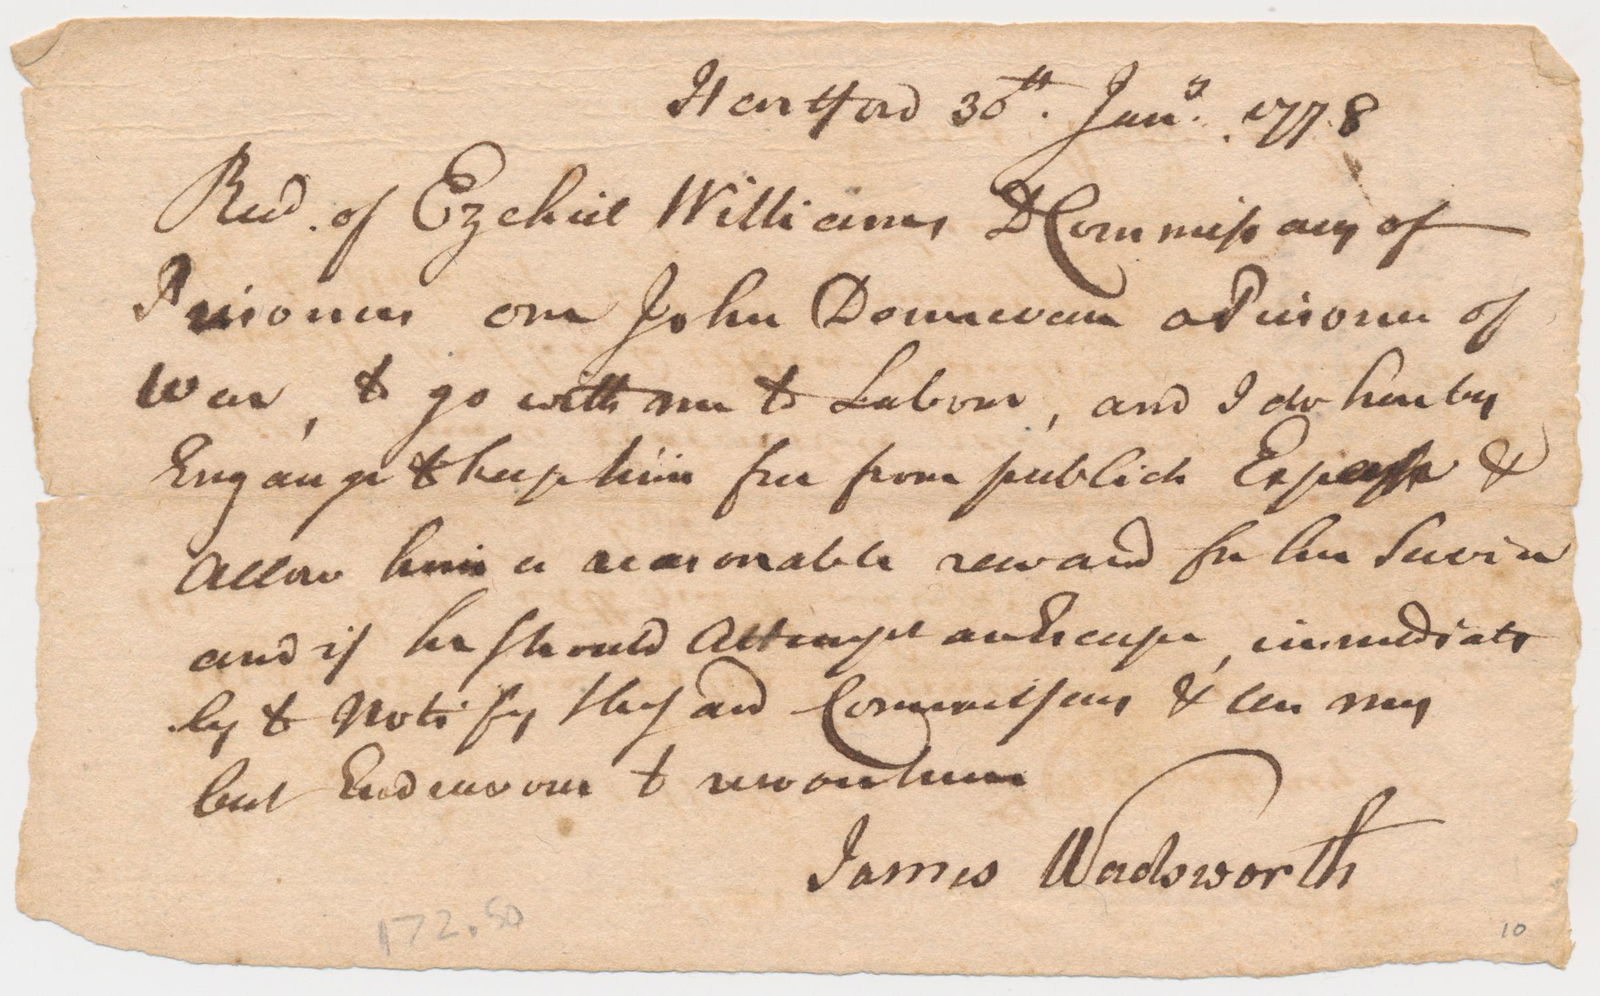 Hartford 30th. Jany. 1778
Recd. of Ezekiel Williams D Commissary of
Prisoners one John Donnevan a Prisoner of
War, to go with me to Labour, and I do hereby
Engauge to keep him free from publick Expense &
Allow him a reasonable reward for his Service
and if he should Attempt an Escape, immediate
ly to Notify the sd Commissary & use my
best Endeavour to
James Wadsworth
172.50
10